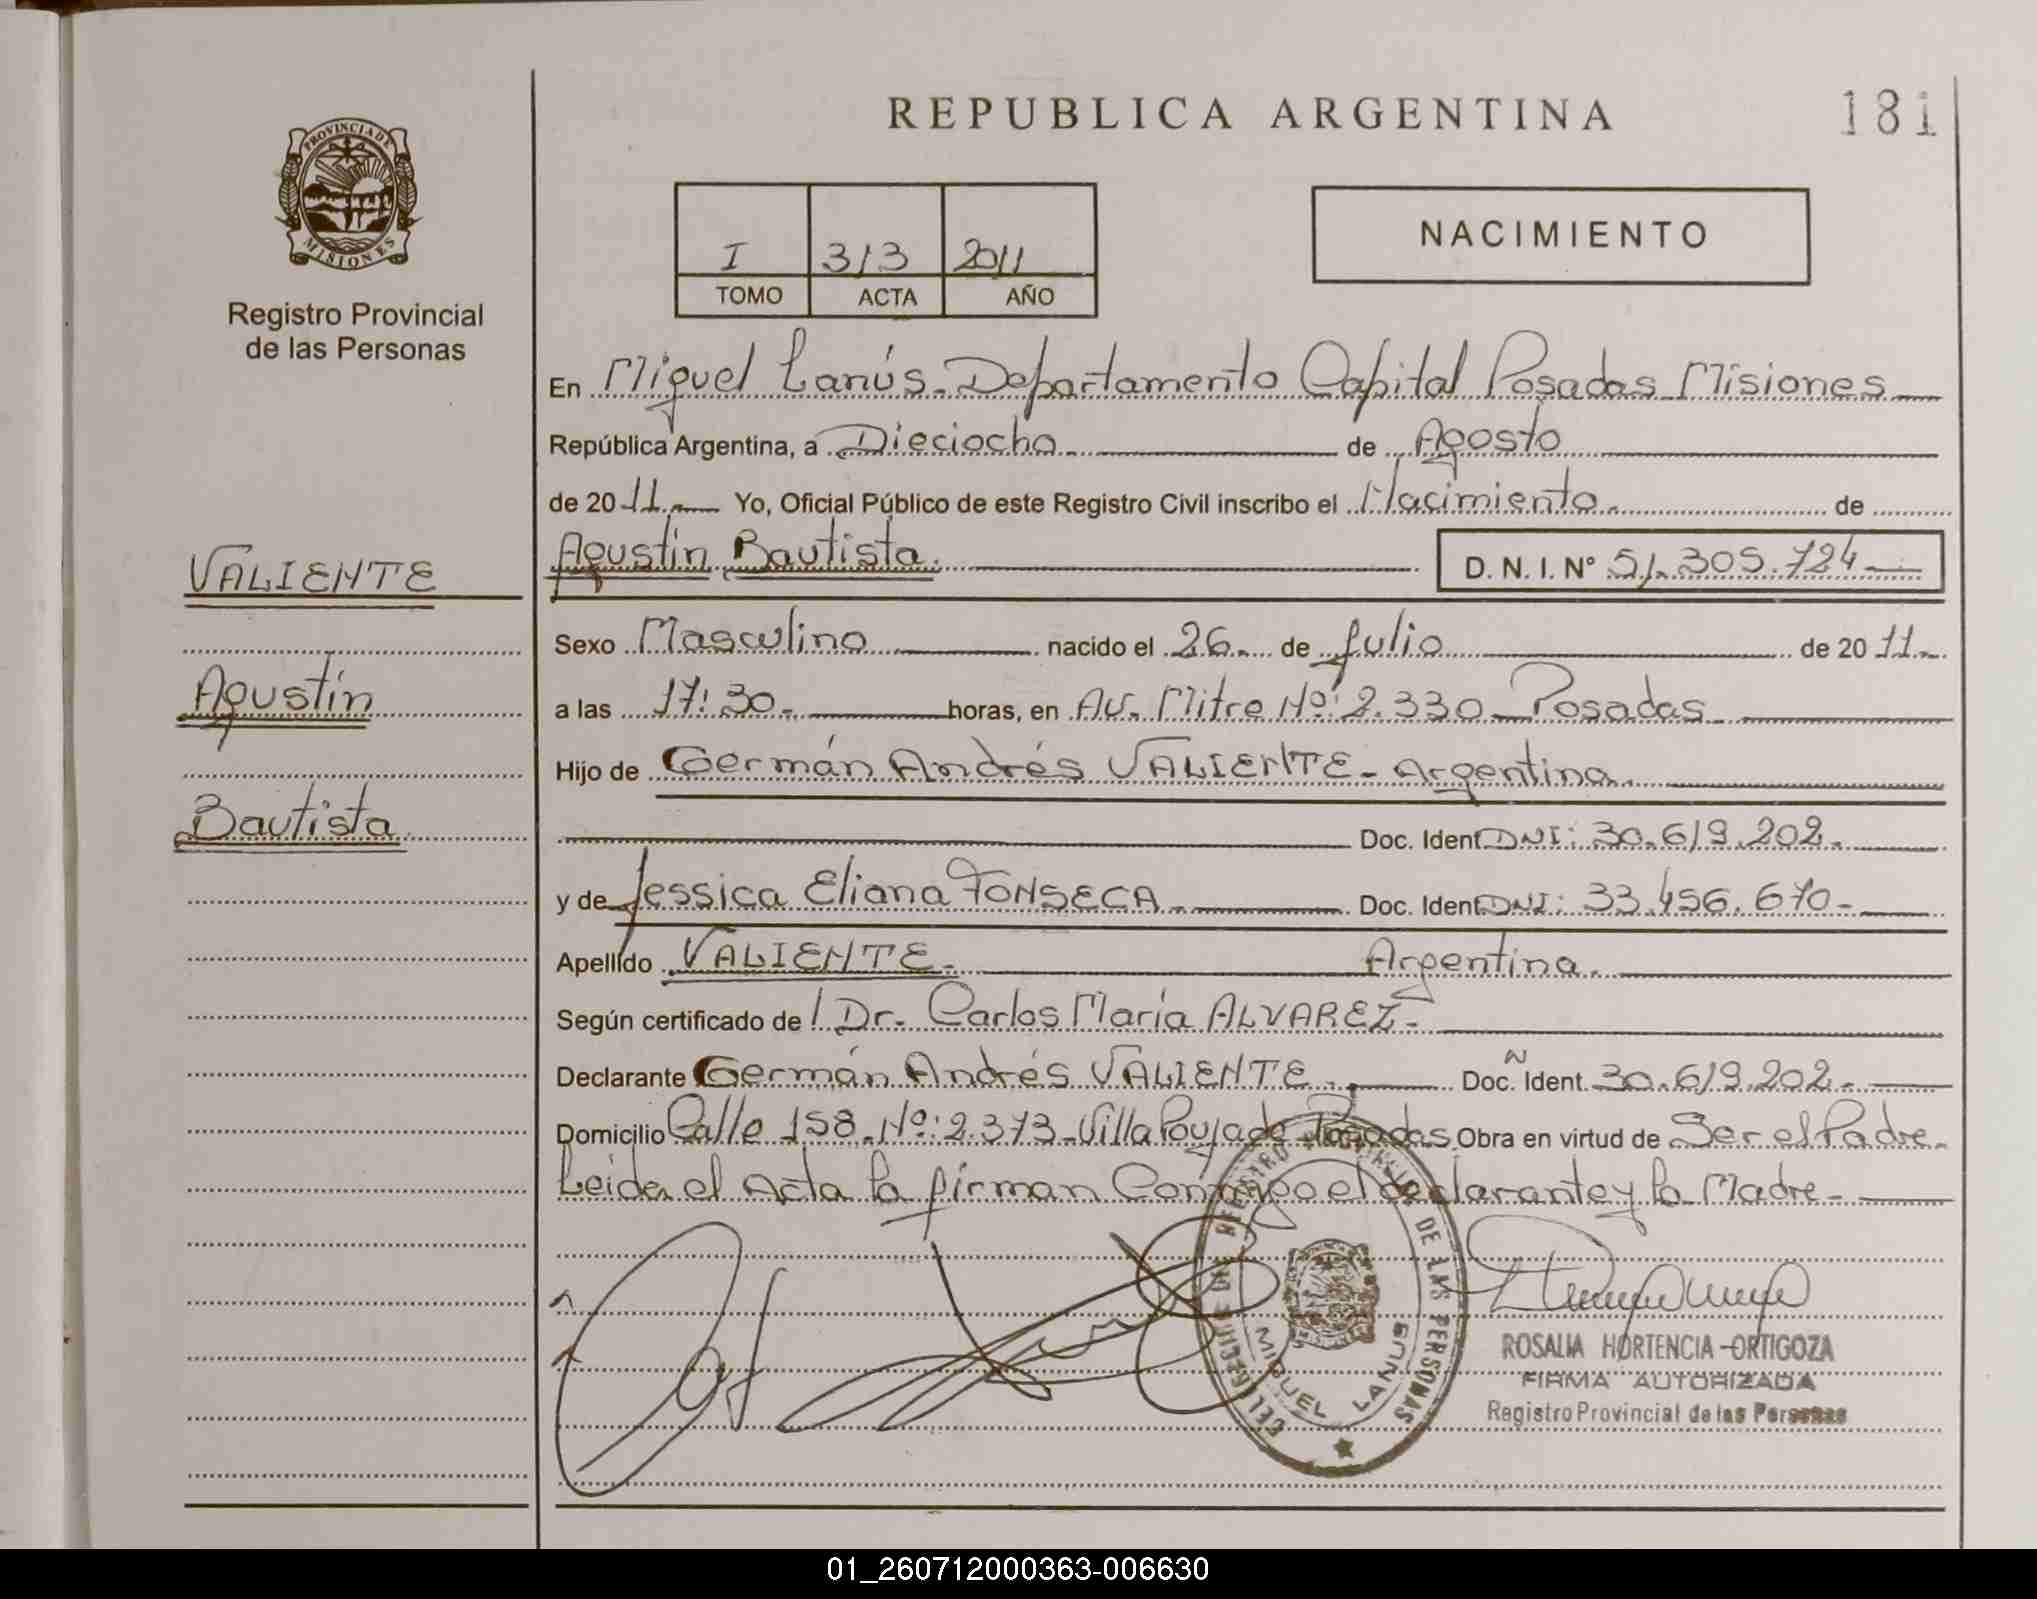 REPUBLICA ARGENTINA
181
PROVINCIA DE
MISIONES
Registro Provincial
de las Personas
I 313 2011
TOMO ACTA AÑO
NACIMIENTO
En Miguel Lanús. Departamento Capital Posadas Misiones
República Argentina, a Dieciocho de Agosto
de 2011. Yo, Oficial Público de este Registro Civil inscribo el Nacimiento. de
VALIENTE
Agustín Bautista. D. N. I. Nº 51.305.724
Sexo Masculino nacido el 26. de Julio de 2011.
Agustín
a las 17:30. horas, en Av. Mitre Nº: 2.330 Posadas
Hijo de Germán Andrés VALIENTE - Argentina.
Bautista
Doc. Ident DNI: 30.619.202.
y de Jessica Eliana FONSECA. Doc. Ident DNI: 33.456.670-
Apellido VALIENTE. Argentina.
Según certificado de / Dr. Carlos María ALVAREZ-
Declarante Germán Andrés VALIENTE. Doc. Ident. 30.619.202.
Domicilio Calle 158 Nº: 2.373 Villa Poujade Posadas. Obra en virtud de Ser el Padre.
Leida el Acta la firman Conmigo el declarante y la Madre-
REGISTRO PROVINCIAL DE LAS PERSONAS
MIGUEL LANUS
ROSALIA HORTENCIA ORTIGOZA
FIRMA AUTORIZADA
Registro Provincial de las Personas
01_260712000363-006630